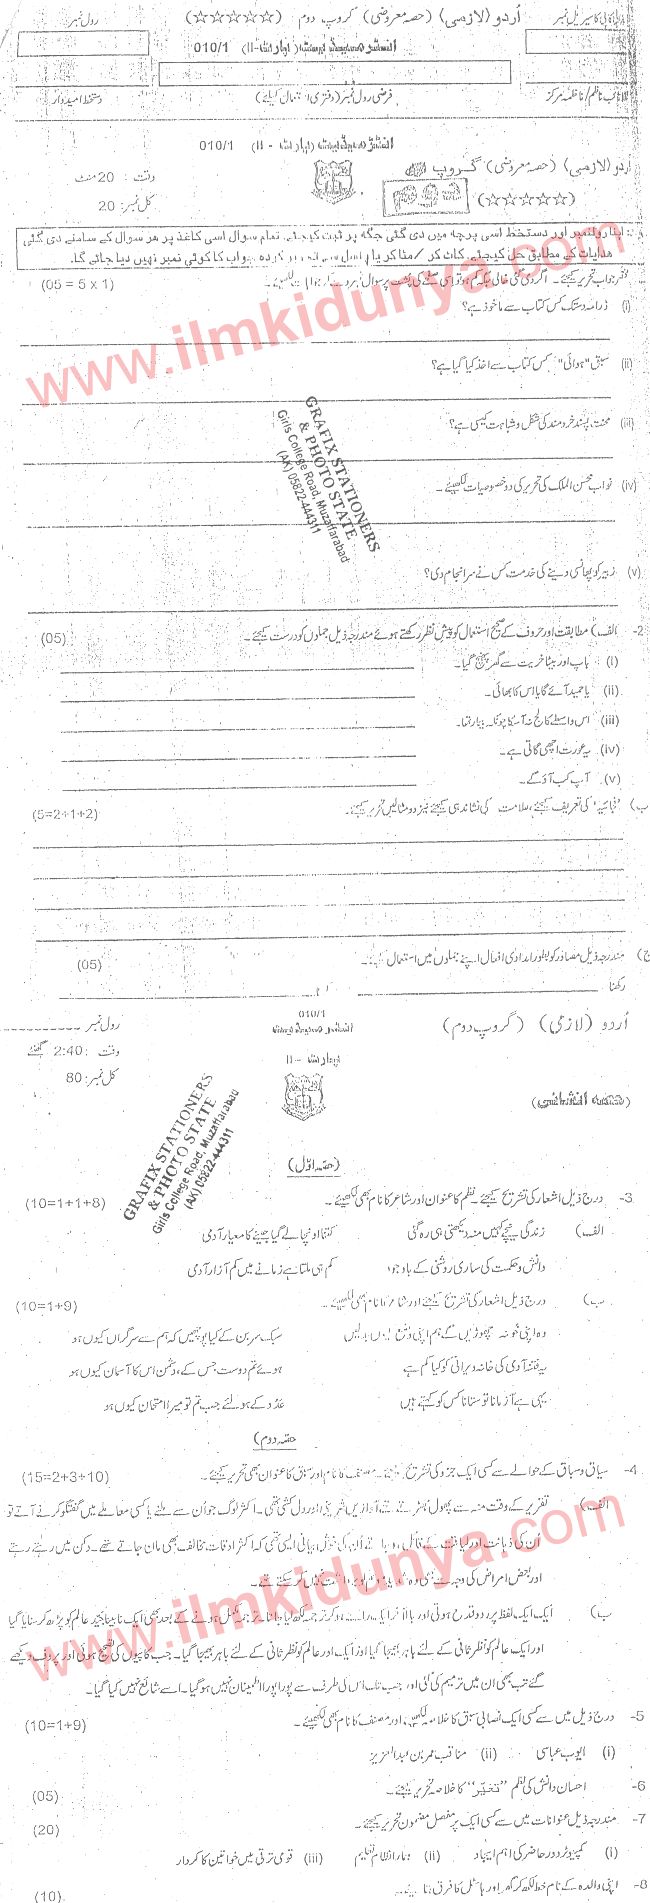 اُردو (لازمی) (حصہ معروضی) گروپ دوم (☆☆☆☆☆)
رول نمبر
انٹرمیڈیٹ (پارٹ-II) 010/1
فرضی رول نمبر (دفتری استعمال کیلئے)
دستخط امیدوار
انٹرمیڈیٹ (پارٹ - II) 010/1
اُردو (لازمی) (حصہ معروضی) گروپ
(☆☆☆☆☆)
وقت : 20 منٹ
کل نمبر: 20
اپنا رولنمبر اور دستخط اسی پرچہ میں دی گئی جگہ پر ثبت کیجئے۔ تمام سوال اسی کاغذ پر ہر سوال کے سامنے دی گئی
ہدایات کے مطابق حل کیجئے۔ کاٹ کر / مٹا کر یا جواب کا کوئی نمبر نہیں دیا جائے گا۔
(05 = 5 x 1)
(i) ڈرامہ دستک کس کتاب سے ماخوذ ہے؟
(ii) سبق "ہوائی" کس کتاب سے اخذ کیا گیا ہے؟
(iii) محنت پسند خردمند کی شکل و شباہت کیسی ہے؟
(iv) نواب محسن الملک کی تحریر کی دو خصوصیات لکھیئے۔
(v) زبیر کو پھانسی دینے کی خدمت کس نے سرانجام دی؟
2- الف) مطابقت اور حروف کے صحیح استعمال کو پیش نظر رکھتے ہوئے مندرجہ ذیل جملوں کو درست کیجئے۔ (05)
(i) باپ اور بیٹا خریت سے گھر پہنچ گیا۔
(ii) یا حمید آئے گا یا اس کا بھائی۔
(iii) اس واسطے کالج نہ آ سکا چونکہ بیمار تھا۔
(iv) یہ عورت اچھی گاتی ہے۔
(v) آپ کب آؤ گے۔
ب) 'فجائیہ' کی تعریف کیجئے، علامت کی نشاندہی کیجئے نیز دو مثالیں تحریر کیجئے۔ (5=2+1+2)
ج) مندرجہ ذیل مصادر کو بطور امدادی افعال اپنے جملوں میں استعمال کیجئے۔ (05)
رکھنا
اُردو (لازمی) (گروپ دوم)
010/1
انٹرمیڈیٹ
پارٹ - II
رول نمبر
وقت : 2:40 گھنٹے
کل نمبر: 80
(حصہ انشائی)
(حصہ اوّل)
3- درج ذیل اشعار کی تشریح کیجئے۔ نظم کا عنوان اور شاعر کا نام بھی لکھیئے۔ (10=1+1+8)
الف) زندگی نیچے کہیں منہ دیکھتی ہی رہ گئی کتنا اونچا لے گیا جینے کا معیار آدمی
دانش و حکمت کی ساری روشنی کے باوجود کم ہی ملتا ہے زمانے میں کم آزار آدمی
ب) درج ذیل اشعار کی تشریح کیجئے اور شاعر کا نام بھی لکھیئے۔ (10=1+9)
وہ اپنی خو نہ چھوڑیں گے ہم اپنی وضع کیوں بدلیں سبک سر بن کے کیا پوچھیں کہ ہم سے سرگراں کیوں ہو
یہ فتنہ آدمی کی خانہ ویرانی کو کیا کم ہے ہوئے تم دوست جس کے، دشمن اس کا آسماں کیوں ہو
یہی ہے آزمانا تو ستانا کس کو کہتے ہیں عدو کے ہو لئے جب تم تو میرا امتحاں کیوں ہو
(حصہ دوم)
4- سیاق و سباق کے حوالے سے کسی ایک جزو کی تشریح کیجئے۔ مصنف کا نام اور سبق کا عنوان بھی تحریر کیجئے۔ (15=2+3+10)
الف) تقریر کے وقت منہ سے پھول جھڑتے تھے آواز میں شیرینی اور دل کشی تھی۔ اکثر لوگ جو اُن سے ملنے یا کسی معاملے میں گفتگو کرنے آتے تو
اُن کی ذہانت اور لیاقت کے قائل ہو جاتے۔ اُن کی خوش بیانی ایسی تھی کہ اکثر اوقات مخالف بھی مان جاتے تھے۔ دکن میں رہتے رہتے
اور بعض امراض کی وجہ سے برداشت نہیں کر سکتے تھے۔
ب) ایک ایک لفظ پر ردوقدح ہوتی اور بالآخر ترجمہ لکھ لیا جاتا۔ ترجمہ مکمل ہونے کے بعد بھی ایک نابینا جید عالم کو پڑھ کر سنایا گیا
اور ایک عالم کو نظرثانی کے لئے باہر بھیجا گیا اور ایک اور عالم کو نظرثانی کے لئے باہر بھیجا گیا۔ جب کاپیوں کی تصحیح ہوئی اور پروف دیکھے
گئے تب بھی ان میں ترمیم کی گئی اور جب تک اس کی طرف سے پورا پورا اطمینان نہیں ہو گیا۔ اسے شائع نہیں کیا گیا۔
5- درج ذیل میں سے کسی ایک نصابی سبق کا خلاصہ لکھیں اور مصنف کا نام بھی لکھیئے۔ (10=1+9)
(i) ایوب عباسی (ii) مناقب عمر بن عبدالعزیز
6- احسان دانش کی نظم "تغیّر" کا خلاصہ تحریر کیجئے۔ (05)
7- مندرجہ ذیل عنوانات میں سے کسی ایک پر مفصل مضمون تحریر کیجئے۔ (20)
(i) کمپیوٹر دورِ حاضر کی اہم ایجاد (ii) ہمارا نظام تعلیم (iii) قومی ترقی میں خواتین کا کردار
8- اپنی والدہ کے نام خط لکھ کر گھر اور ہاسٹل کا فرق بتائیے۔ (10)
www.ilmkidunya.com
GRAFIX STATIONERS
& PHOTO STATE
Girls College Road, Muzaffarabad
(AK) 05822-444311
www.ilmkidunya.com
GRAFIX STATIONERS
& PHOTO STATE
Girls College Road, Muzaffarabad
(AK) 05822-444311